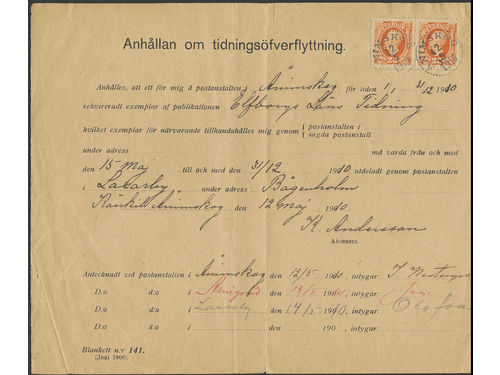 SVERIGE SVERIGE
Anhållan om tidningsöfverflyttning.
Anhålles, att ett för mig å postanstalten Ånimskog för tiden 1/1 31/12 1910
rekvireradt exemplar af publikationen Elfborgs Läns Tidning
hvilket exemplar för närvarande tillhandahålles mig genom {postanstalten i
sagda postanstalt
under adress må varda från och med
den 15 Maj till och med den 31/12 1910 utdeladt genom postanstalten
i under adress: Bågenholm
Ånimskog den 12 maj 1910
K. Andersson
Abonnent.
Antecknadt vid postanstalten i Ånimskog den 12/5 1910, intygar:
D:o d:o i den 190 , intygar:
D:o d:o i den 14/5 1910, intygar: Olofson
D:o d:o i den 190 , intygar:
Blankett n:r 141.
(Juni 1906)